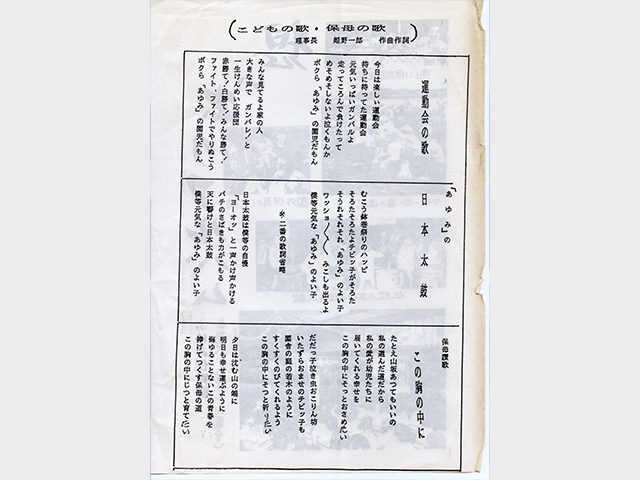 (こどもの歌・保母の歌)
理事長 姫野一郎 作曲作詞
運動会の歌
今日は楽しい運動会
待ちに待ってた運動会
元気いっぱいガンバルよ
走ってころんで負けたって
めそめそしないよ泣くもんか
ボクら「あゆみ」の園児だもん
みんな見てるよ家の人
大きな声で ガンバレ!と
一生けんめい応援団
赤勝て!白勝て!みんな勝て!
ファイト・ファイトでやりぬこう
ボクら「あゆみ」の園児だもん
「あゆみ」の
日本太鼓
むこう鉢巻祭りのハッピ
そろたそろたよチビッ子がそろた
そうれそれそれ「あゆみ」のよい子
ワッショイ〱 みこしも出るよ
僕等元気な「あゆみ」のよい子
※二番の歌詞省略
日本太鼓は僕等の自慢
「ヨーオッ」と一声かけ声かける
バチのさばきも力がこもる
天に響けと日本太鼓
僕等元気な「あゆみ」のよい子
保母讃歌
この胸の中に
たとえ山坂あってもいいの
私の選んだ道だから
私の愛が幼児たちに
届いてくれる幸せを
この胸の中にそっとおさめたい
だだっ子泣き虫おこりん坊
いたずらおませのチビッ子も
園舎の庭の若木のように
すくすくのびてくれるよう
この胸の中にそっと祈りたい
夕日は沈む山の端に
明日も幸せ運ぶように
悔ゆることないこの青春を
捧げてつくす保母の道
この胸の中にじっと育てたい